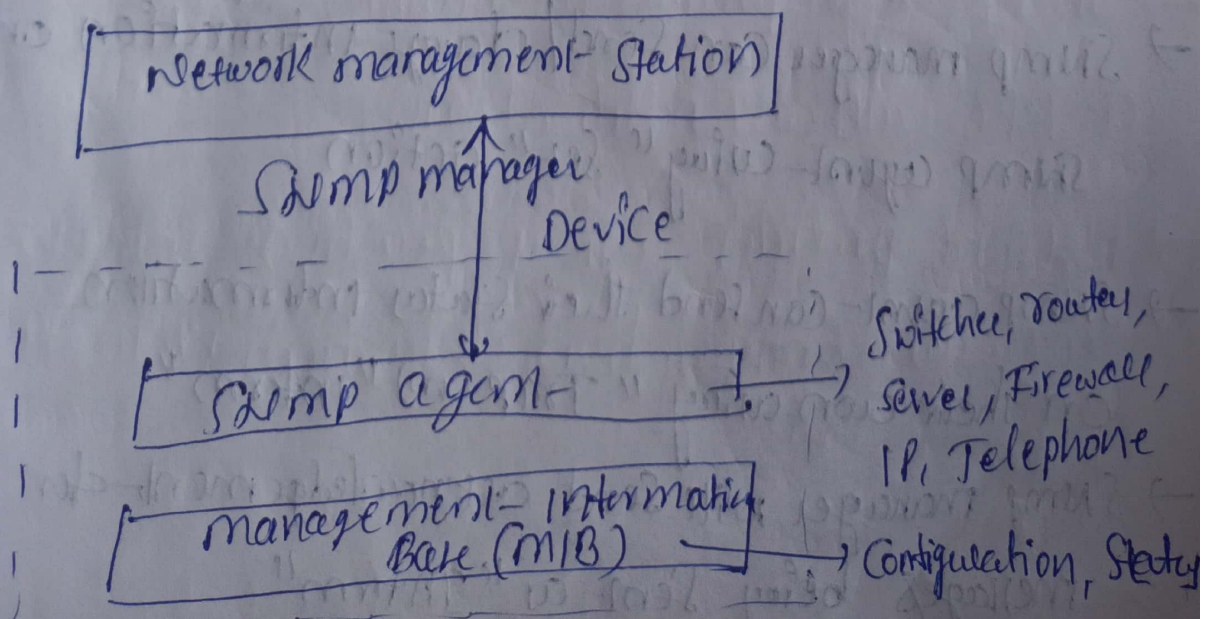 Network management Station
SNMP manager
Device
SNMP agent
Switches, routers,
Server, Firewall,
IP, Telephone
management Information
Base (MIB)
Configuration, Status